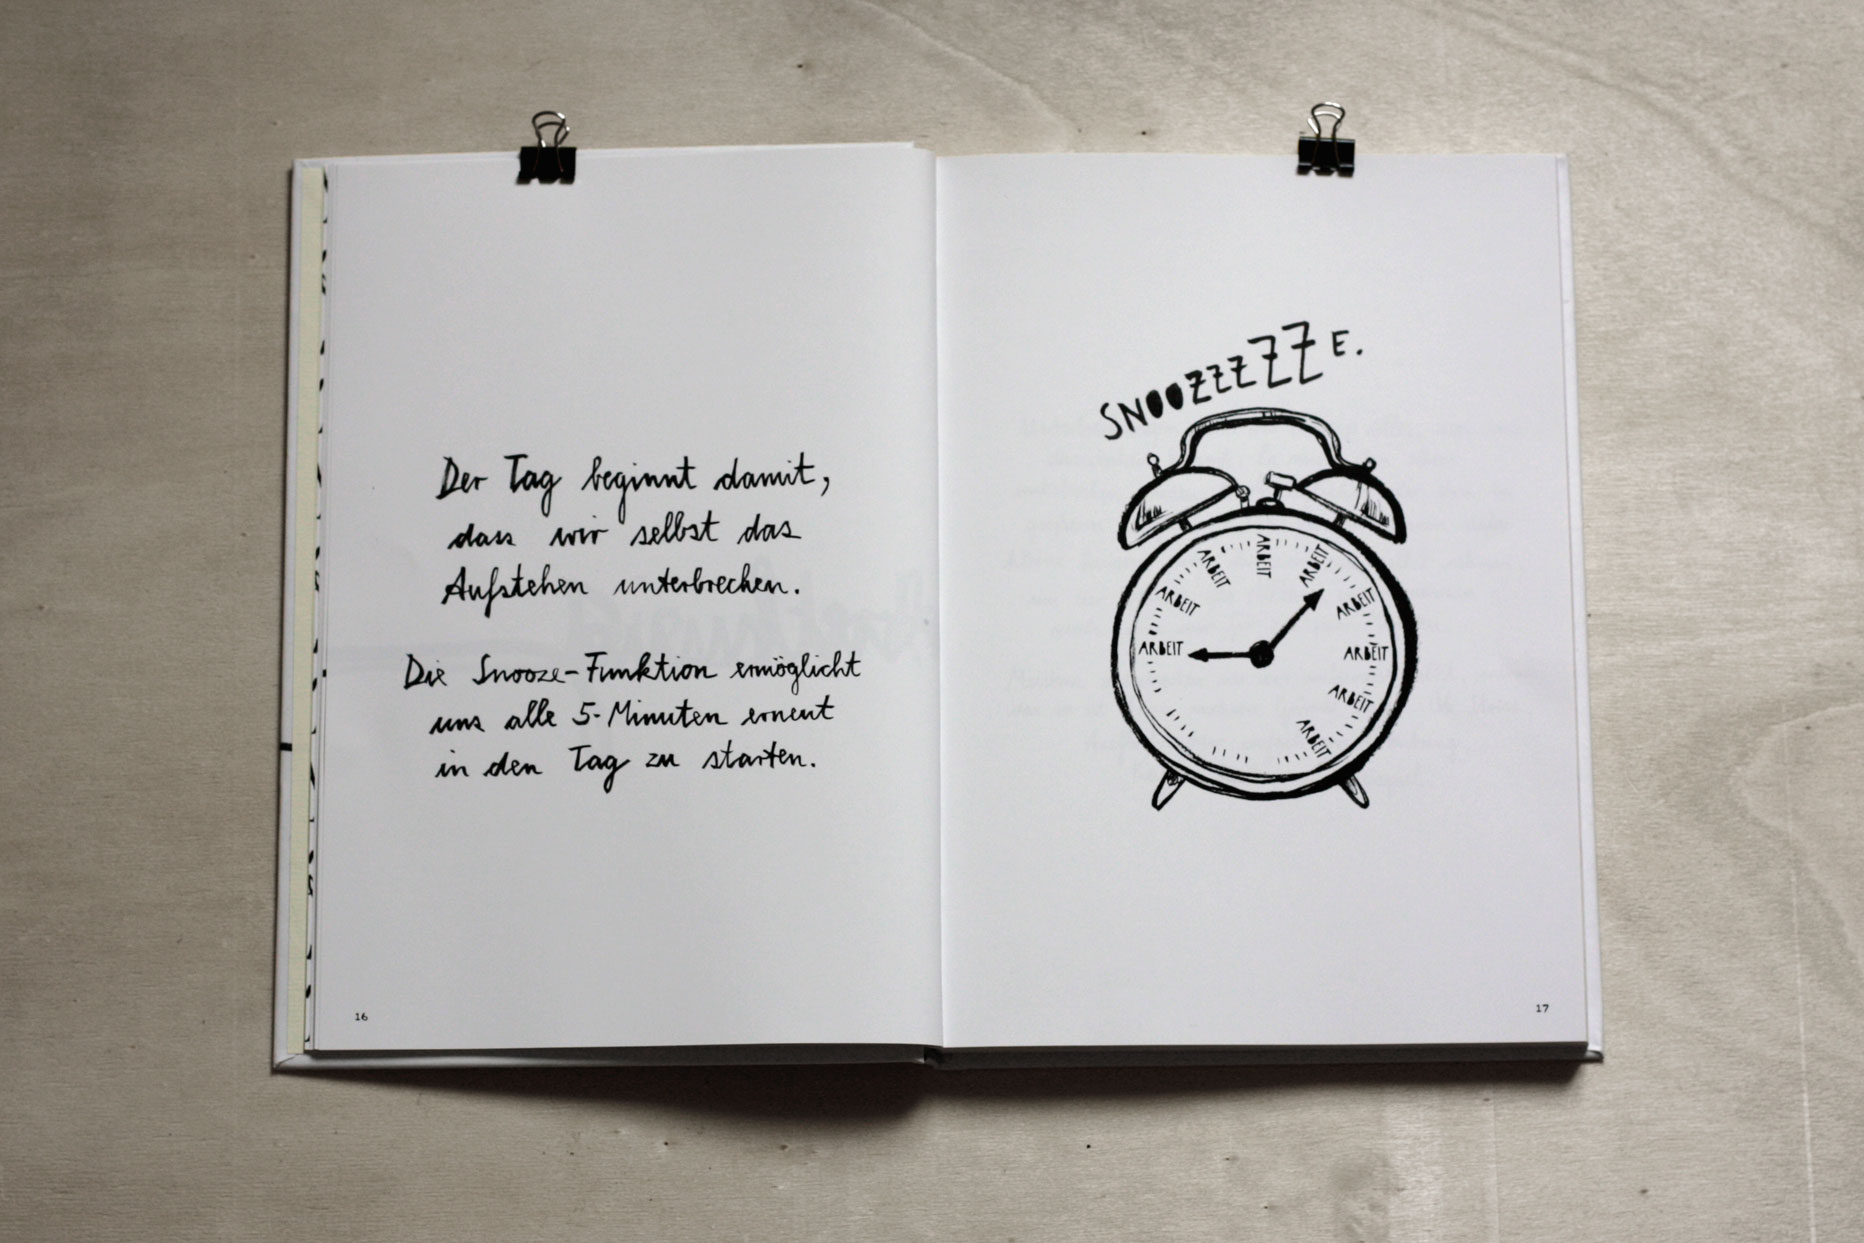 Der Tag beginnt damit,
dass wir selbst das
Aufstehen unterbrechen.
Die Snooze-Funktion ermöglicht
uns alle 5-Minuten erneut
in den Tag zu starten.
16
SNOOZZZZZE.
ARBEIT
ARBEIT
ARBEIT
ARBEIT
ARBEIT
ARBEIT
ARBEIT
ARBEIT
ARBEIT
17